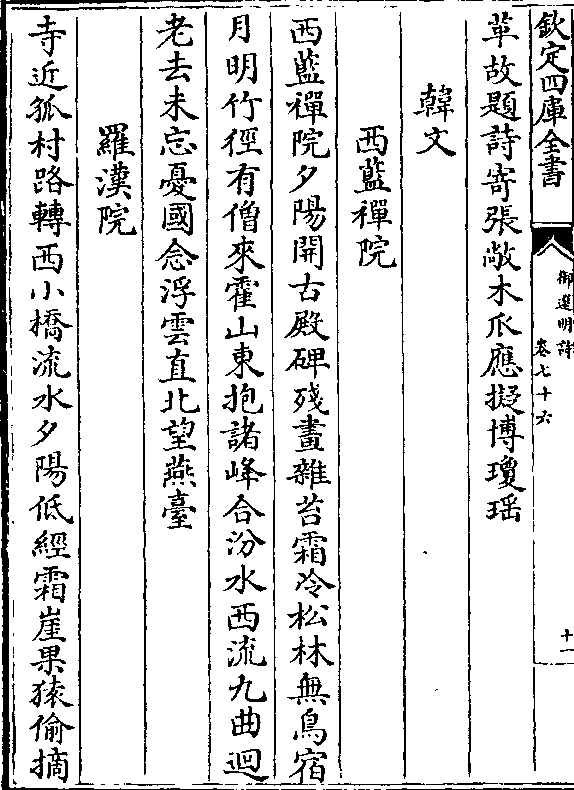 欽定四庫全書
御選明詩
卷七十六
十一
革故題詩寄張敞木瓜應擬博瓊瑶
韓文
西藍禪院
西藍禪院夕陽開古殿碑殘畫雜苔霜冷松林無鳥宿
月明竹徑有僧來霍山東抱諸峰合汾水西流九曲迴
老去未忘憂國念浮雲直北望燕臺
羅漢院
寺近孤村路轉西小橋流水夕陽低經霜崖果猿偷摘